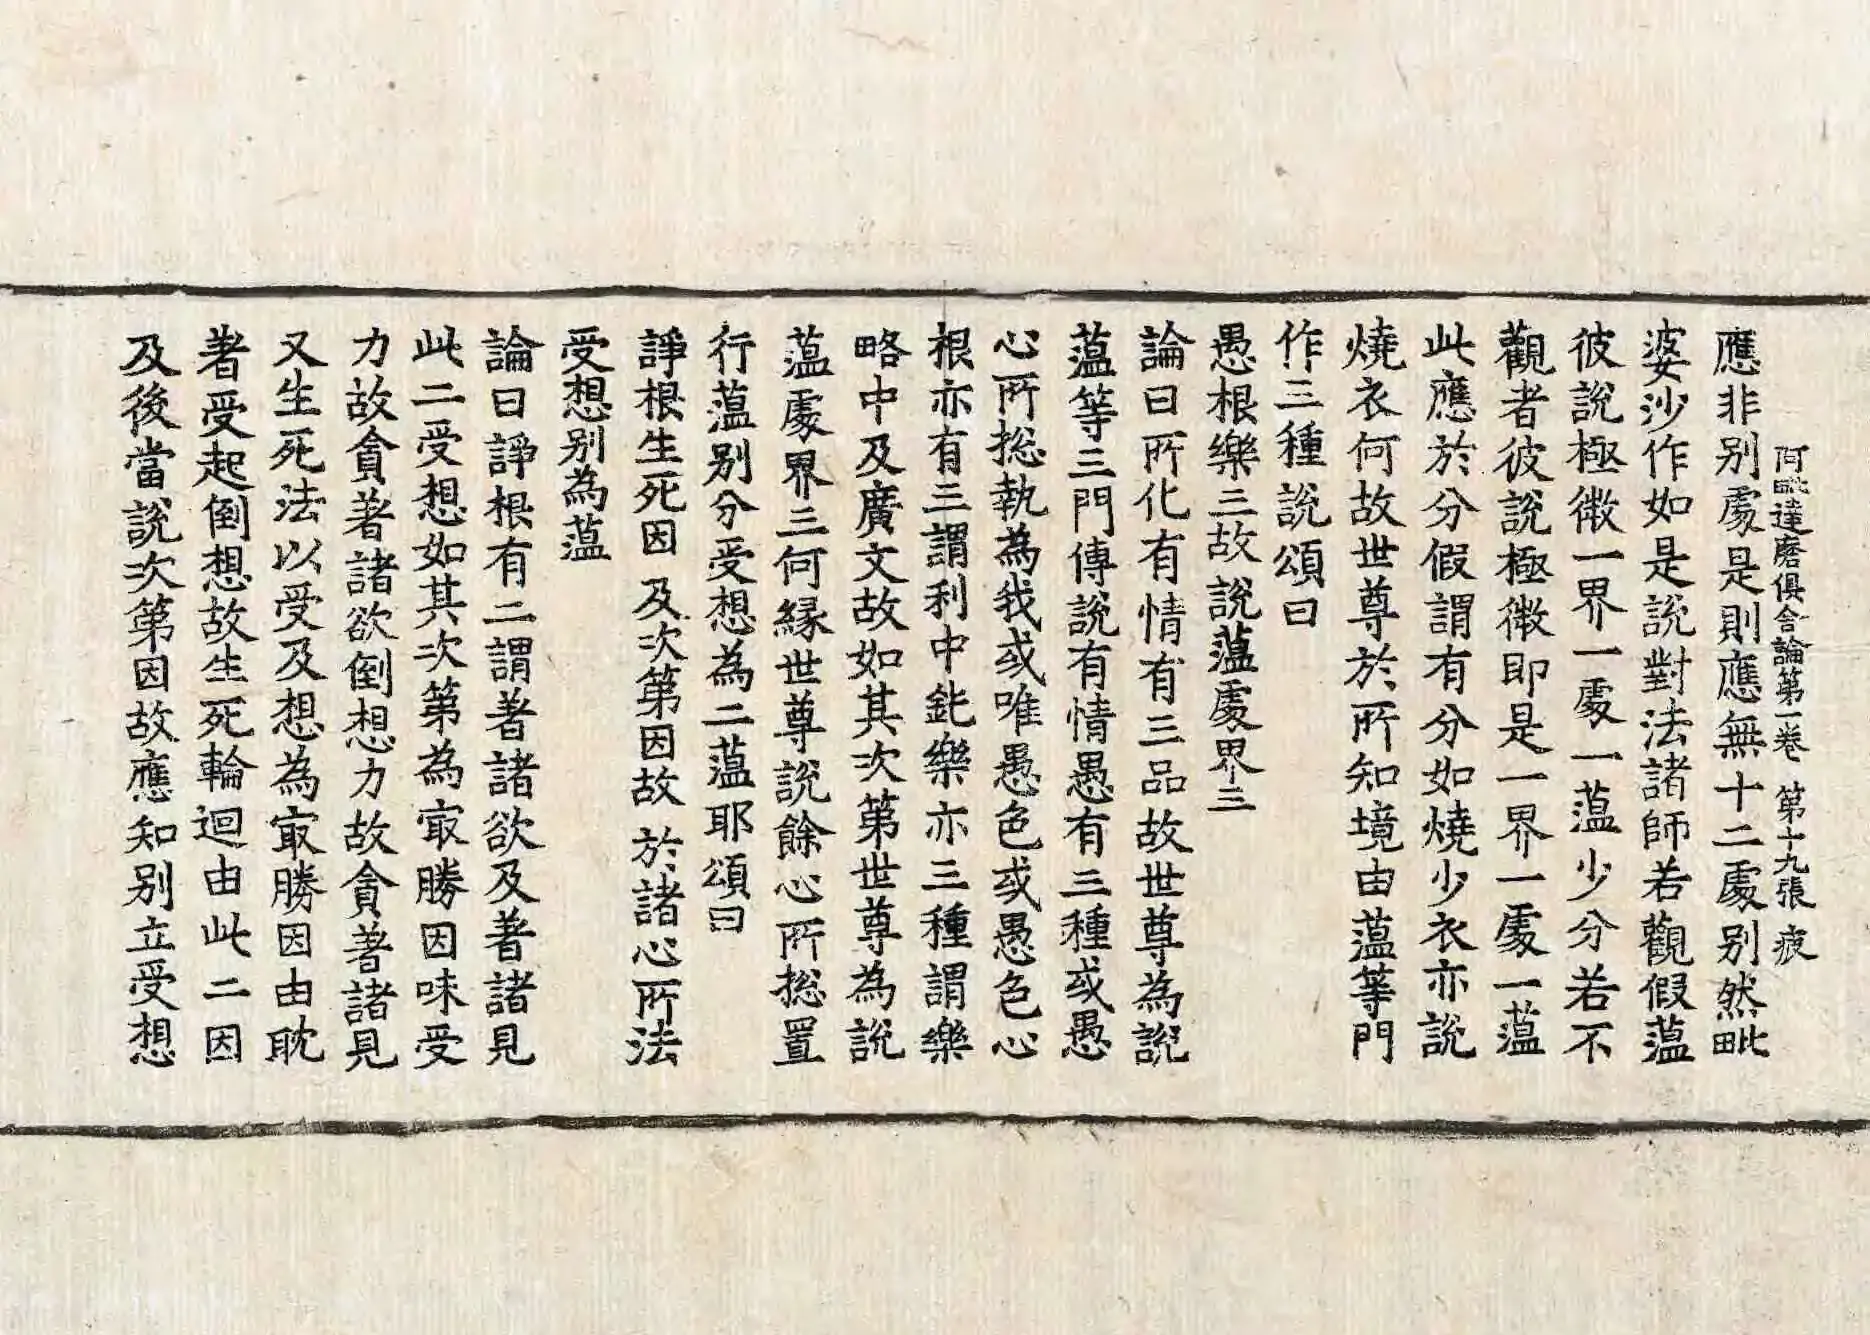 阿毗達磨俱舍論第一卷 第十九張 疲
應非別處是則應無十二處別然毗
婆沙作如是說對法諸師若觀假蘊
彼說極微一界一處一蘊少分若不
觀者彼說極微即是一界一處一蘊
此應於分假謂有分如燒少衣亦說
燒衣何故世尊於所知境由蘊等門
作三種說頌曰
愚根樂三故說蘊處界三
論曰所化有情有三品故世尊為說
蘊等三門傳說有情愚有三種或愚
心所捴執為我或唯愚色或愚色心
根亦有三謂利中鈍樂亦三種謂樂
略中及廣文故如其次第世尊為說
蘊處界三何緣世尊說餘心所捴置
行蘊別分受想為二蘊耶頌曰
諍根生死因 及次第因故 於諸心所法
受想別為蘊
論曰諍根有二謂著諸欲及著諸見
此二受想如其次第為㝡勝因味受
力故貪著諸欲倒想力故貪著諸見
又生死法以受及想為㝡勝因由耽
著受起倒想故生死輪迴由此二因
及後當說次第因故應知別立受想